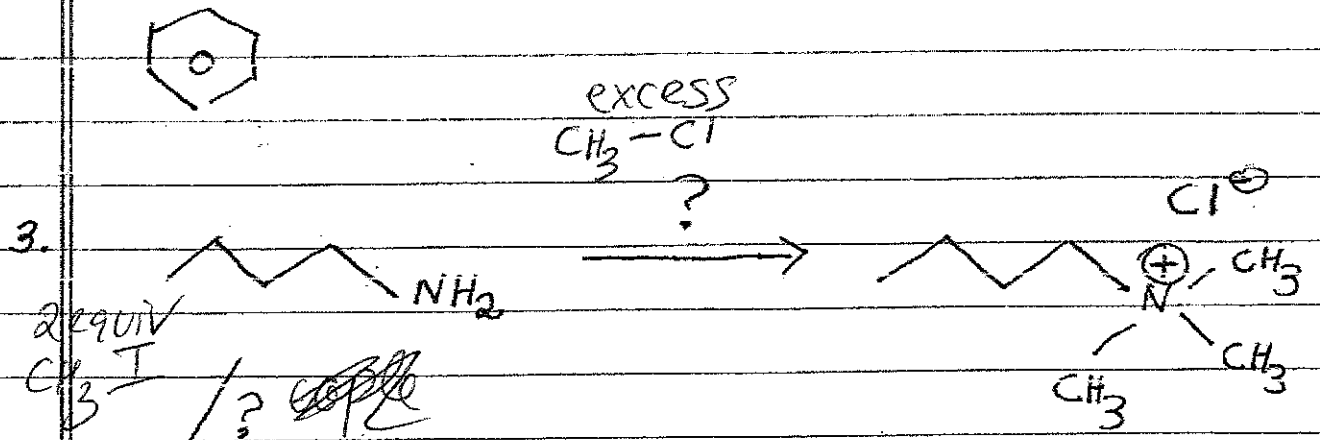 excess
CH₃-Cl
?
Cl⊖
3.
NH₂
⊕
N
CH₃
CH₃
CH₃
2 equiv
CH₃I
?